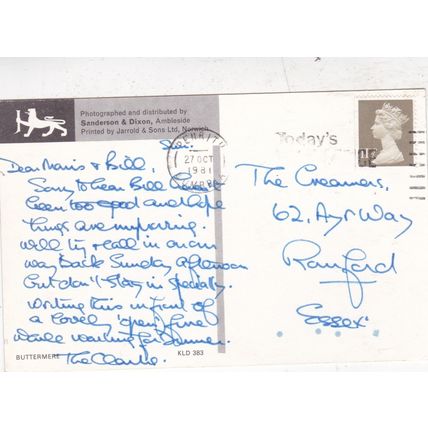 Photographed and distributed by
Sanderson & Dixon, Ambleside
Printed by Jarrold & Sons Ltd, Norwich
Sat.
27 OCT
1981
Today's
Dear Mavis & Bill,
Sorry to hear Bill
been too good and hope
things are improving.
Will try & call in on our
way back Sunday afternoon
but don't stay in specially.
Writing this in front of
a lovely 'open' fire
while waiting for dinner.
The Clarke.
The Creamers,
62, Ayr Way
Romford
Essex
BUTTERMERE
KLD 383